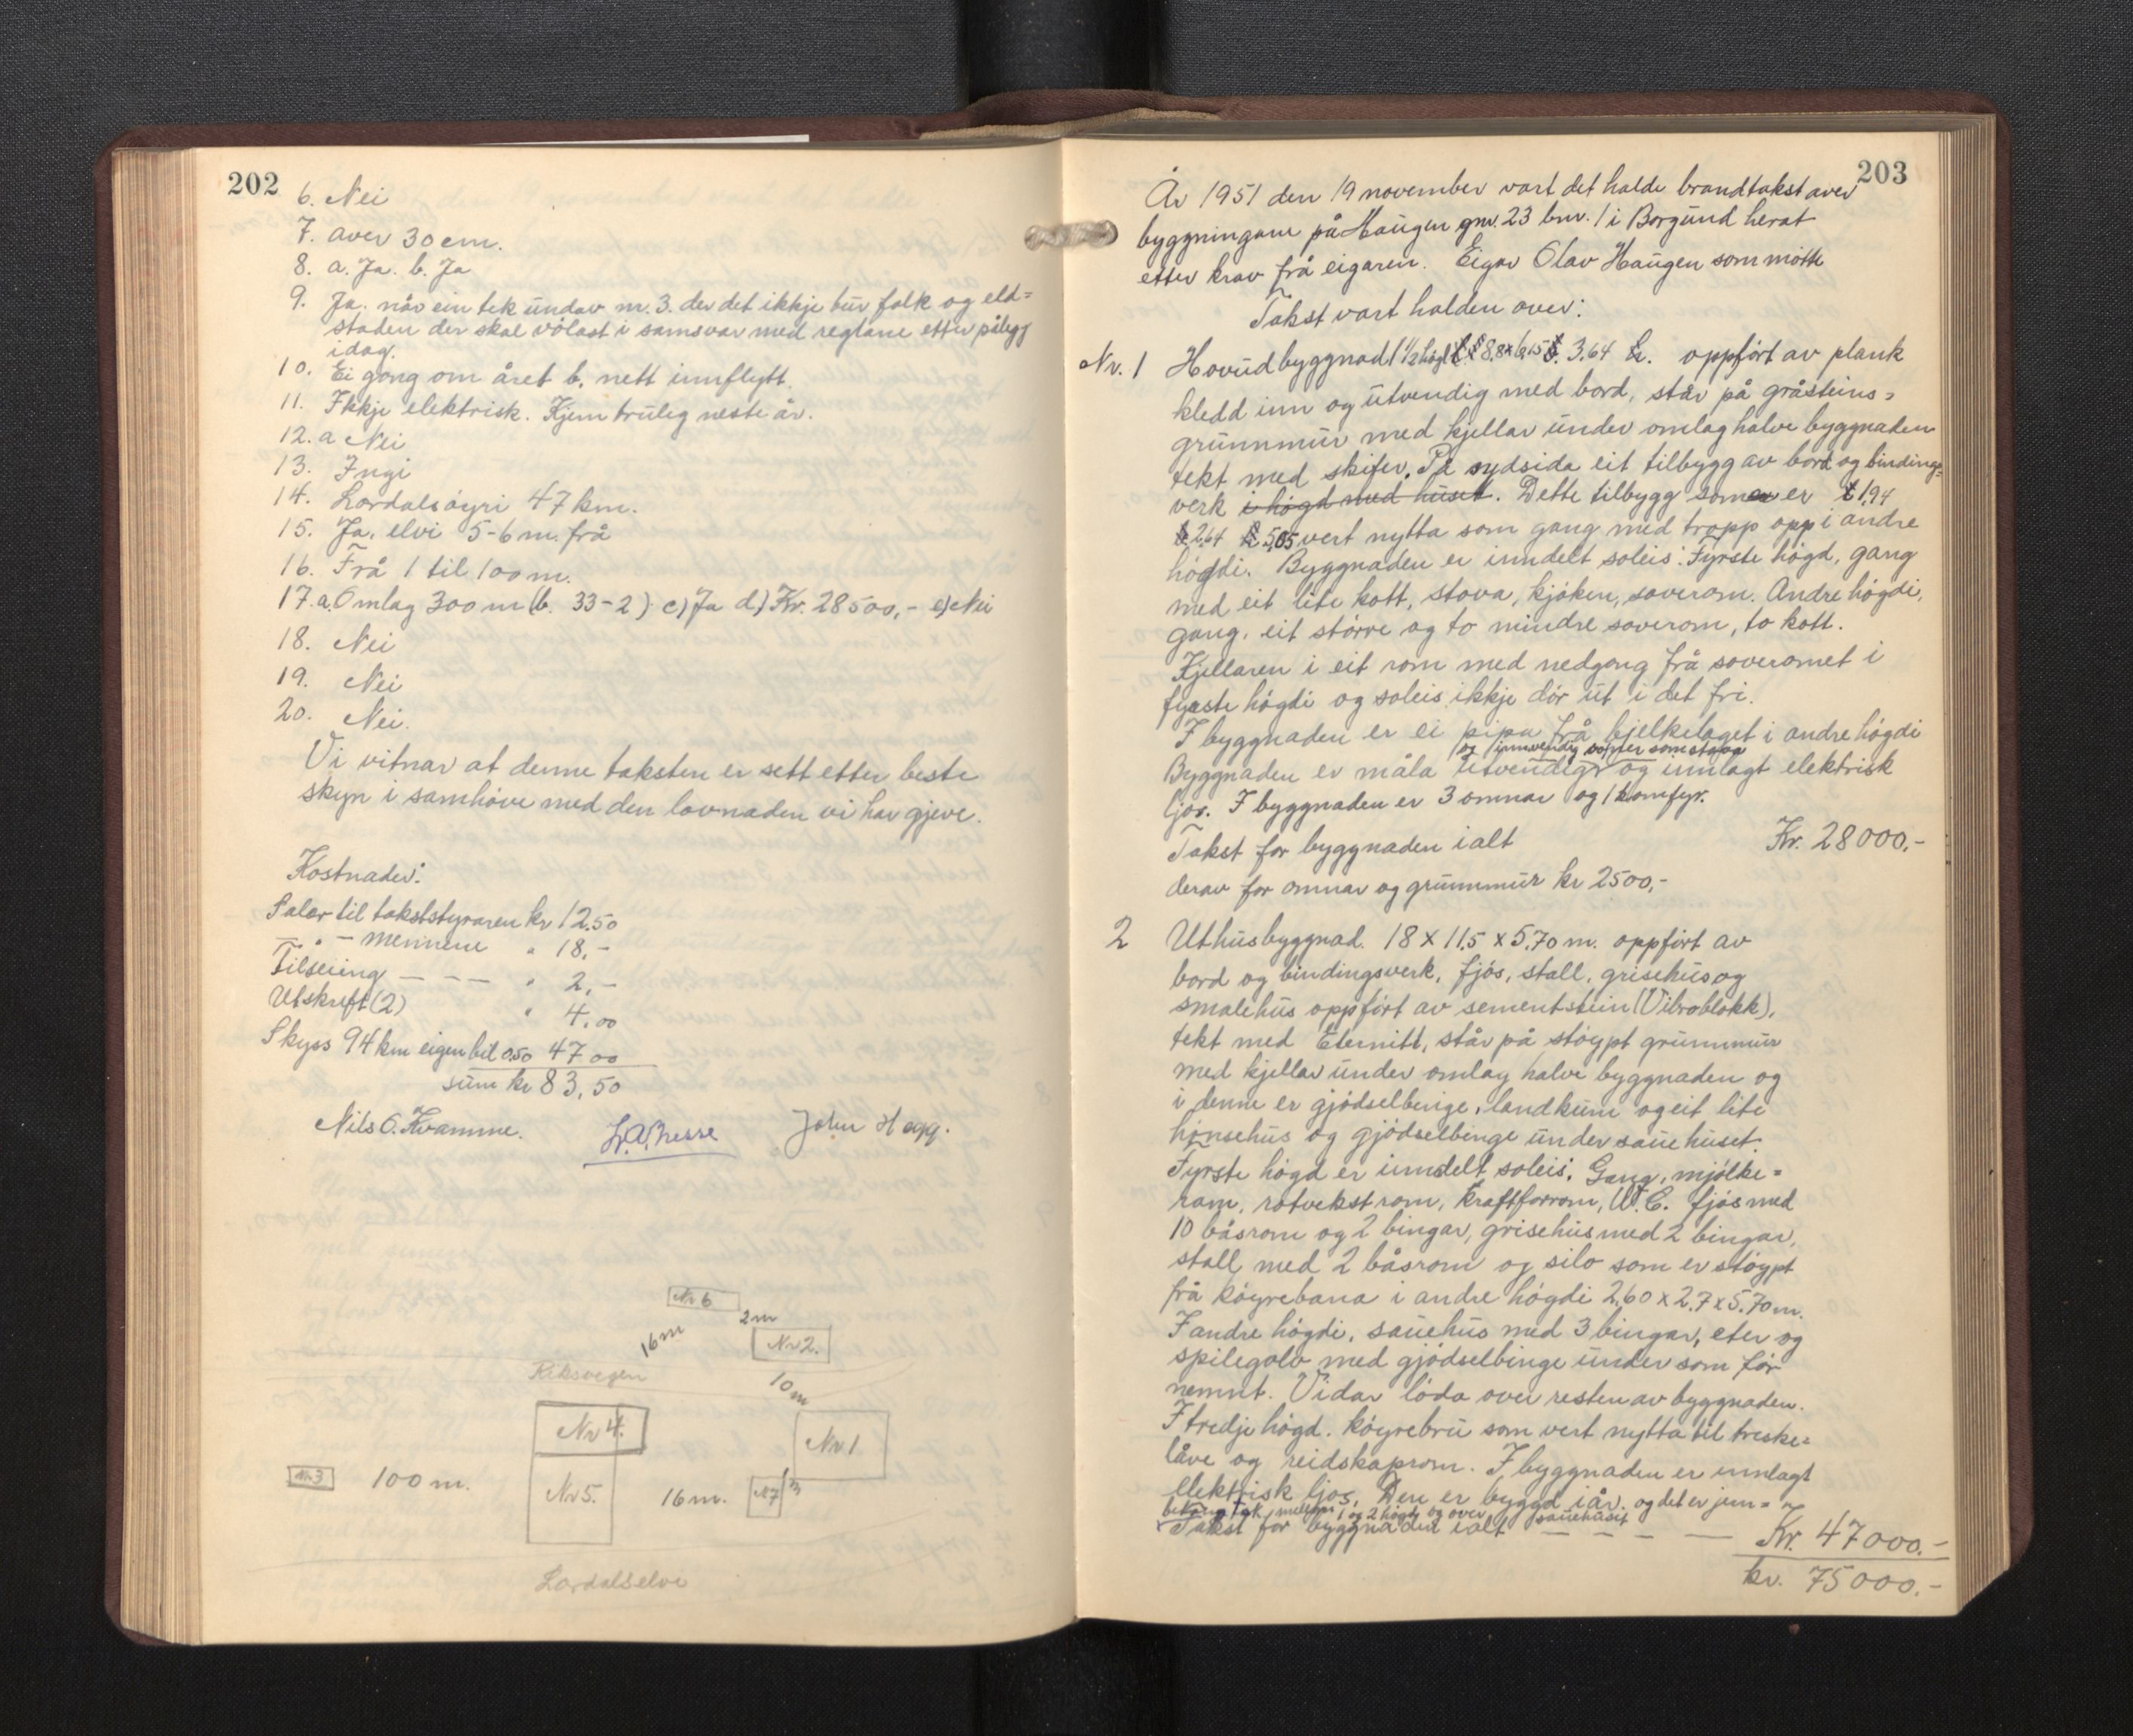 202
6. Nei
7. over 30 cm.
8. a. Ja. b. Ja
9. Ja. når ein tek undav nr. 3. der det ikkje bur folk og eld=
staden der skal vølast i samsvar med reglane etter pålegg
idag.
10. Ei gong om året b. nett innflytt.
11. Ikkje elektrisk. Kjem truleg neste år.
12. a Nei
13. Ingi
14. Lærdalsøyri 47 km.
15. Ja, elvi 5-6 m. frå
16. Frå 1 til 100 m.
17. a. Omlag 300 m b. 33-2) c) Ja d) Kr. 28500,- e) Nei
18. Nei
19. Nei
20. Nei.
Vi vitnar at denne taksten er sett etter beste
skyn i samhøve med den lovnaden vi har gjeve.
Kostnader:
Salær til takststyraren kr 12.50
— " — mennene " 18,-
Tilseiing — — — " 2,-
Utskrift (2) " 4,00
Skyss 94 km eigen bil 0.50 47 00
sum kr 83,50
Nils O. Kvamme.
John Hegg.
Nr 6
2m
16m
Nr 2.
Riksvegen
10m
Nr 4.
Nr 1
Nr. 3
100 m.
Nr 5.
16 m.
N 7
1 m
Lærdalselvi
203
År 1951 den 19 november vart det halde brandtakst over
byggningane på Haugen gnr. 23 bnr. 1 i Borgund herat
etter krav frå eigaren. Eigar Olav Haugen som møtte
Takst vart halden over:
Nr. 1 Hovudbyggnad 1 1/2 høgd 8,8 x 6,15 3.64 oppført av plank
kledd inn og utvendig med bord, står på gråsteins=
grunnmur med kjellar under omlag halve byggnaden
tekt med skifer. På sydsida eit tilbygg av bord og bindings=
verk i høgd med huset. Dette tilbygg som er 1,94
2,64 5,05 vert nytta som gang med tropp opp i andre
høgdi. Byggnaden er inndelt soleis: Fyrste høgd, gang
med eit lite kott, stova, kjøken, soverom. Andre høgdi,
gang, eit større og to mindre soverom, to kott.
Kjellaren i eit rom med nedgong frå soveromet i
fyrste høgdi og soleis ikkje dør ut i det fri.
I byggnaden er ei pipa frå bjelkelaget i andre høgdi
og innvendig
Byggnaden er måla utvendig og innlagt elektrisk
ljos. I byggnaden er 3 omnar og 1 komfyr.
Takst for byggnaden ialt Kr. 28000,-
derav for omnar og grunnmur kr 2500,-
2 Uthusbyggnad. 18 x 11,5 x 5,70 m. oppført av
bord og bindingsverk, fjøs, stall, grisehus og
smalehus oppført av sementstein (Vibroblokk),
tekt med Eternitt, står på støypt grunnmur
med kjellar under omlag halve byggnaden og
i denne er gjødselbinge, landkum og eit lite
hønsehus og gjødselbinge under sauehuset.
Fyrste høgd er inndelt soleis: Gang, mjølke=
rom, rotvekstrom, kraftforrom, W.C. fjøs med
10 båsrom og 2 bingar, grisehus med 2 bingar,
stall med 2 båsrom og silo som er støypt
frå køyrebana i andre høgdi 2,60 x 2.7 x 5.70 m.
I andre høgdi, sauehus med 3 bingar, eter og
spilegolv med gjødselbinge under som før
nemnt. Vidar løda over resten av byggnaden.
I tredje høgd. køyrebru som vert nytta til treske=
låve og reidskaprom. I byggnaden er innlagt
elektrisk ljos. Den er byggd i år. og det er jern=
betong tak mellom 1 og 2 høgd og over sauehuset
Takst for byggnaden ialt — — — — Kr. 47000.-
kr. 75000.-